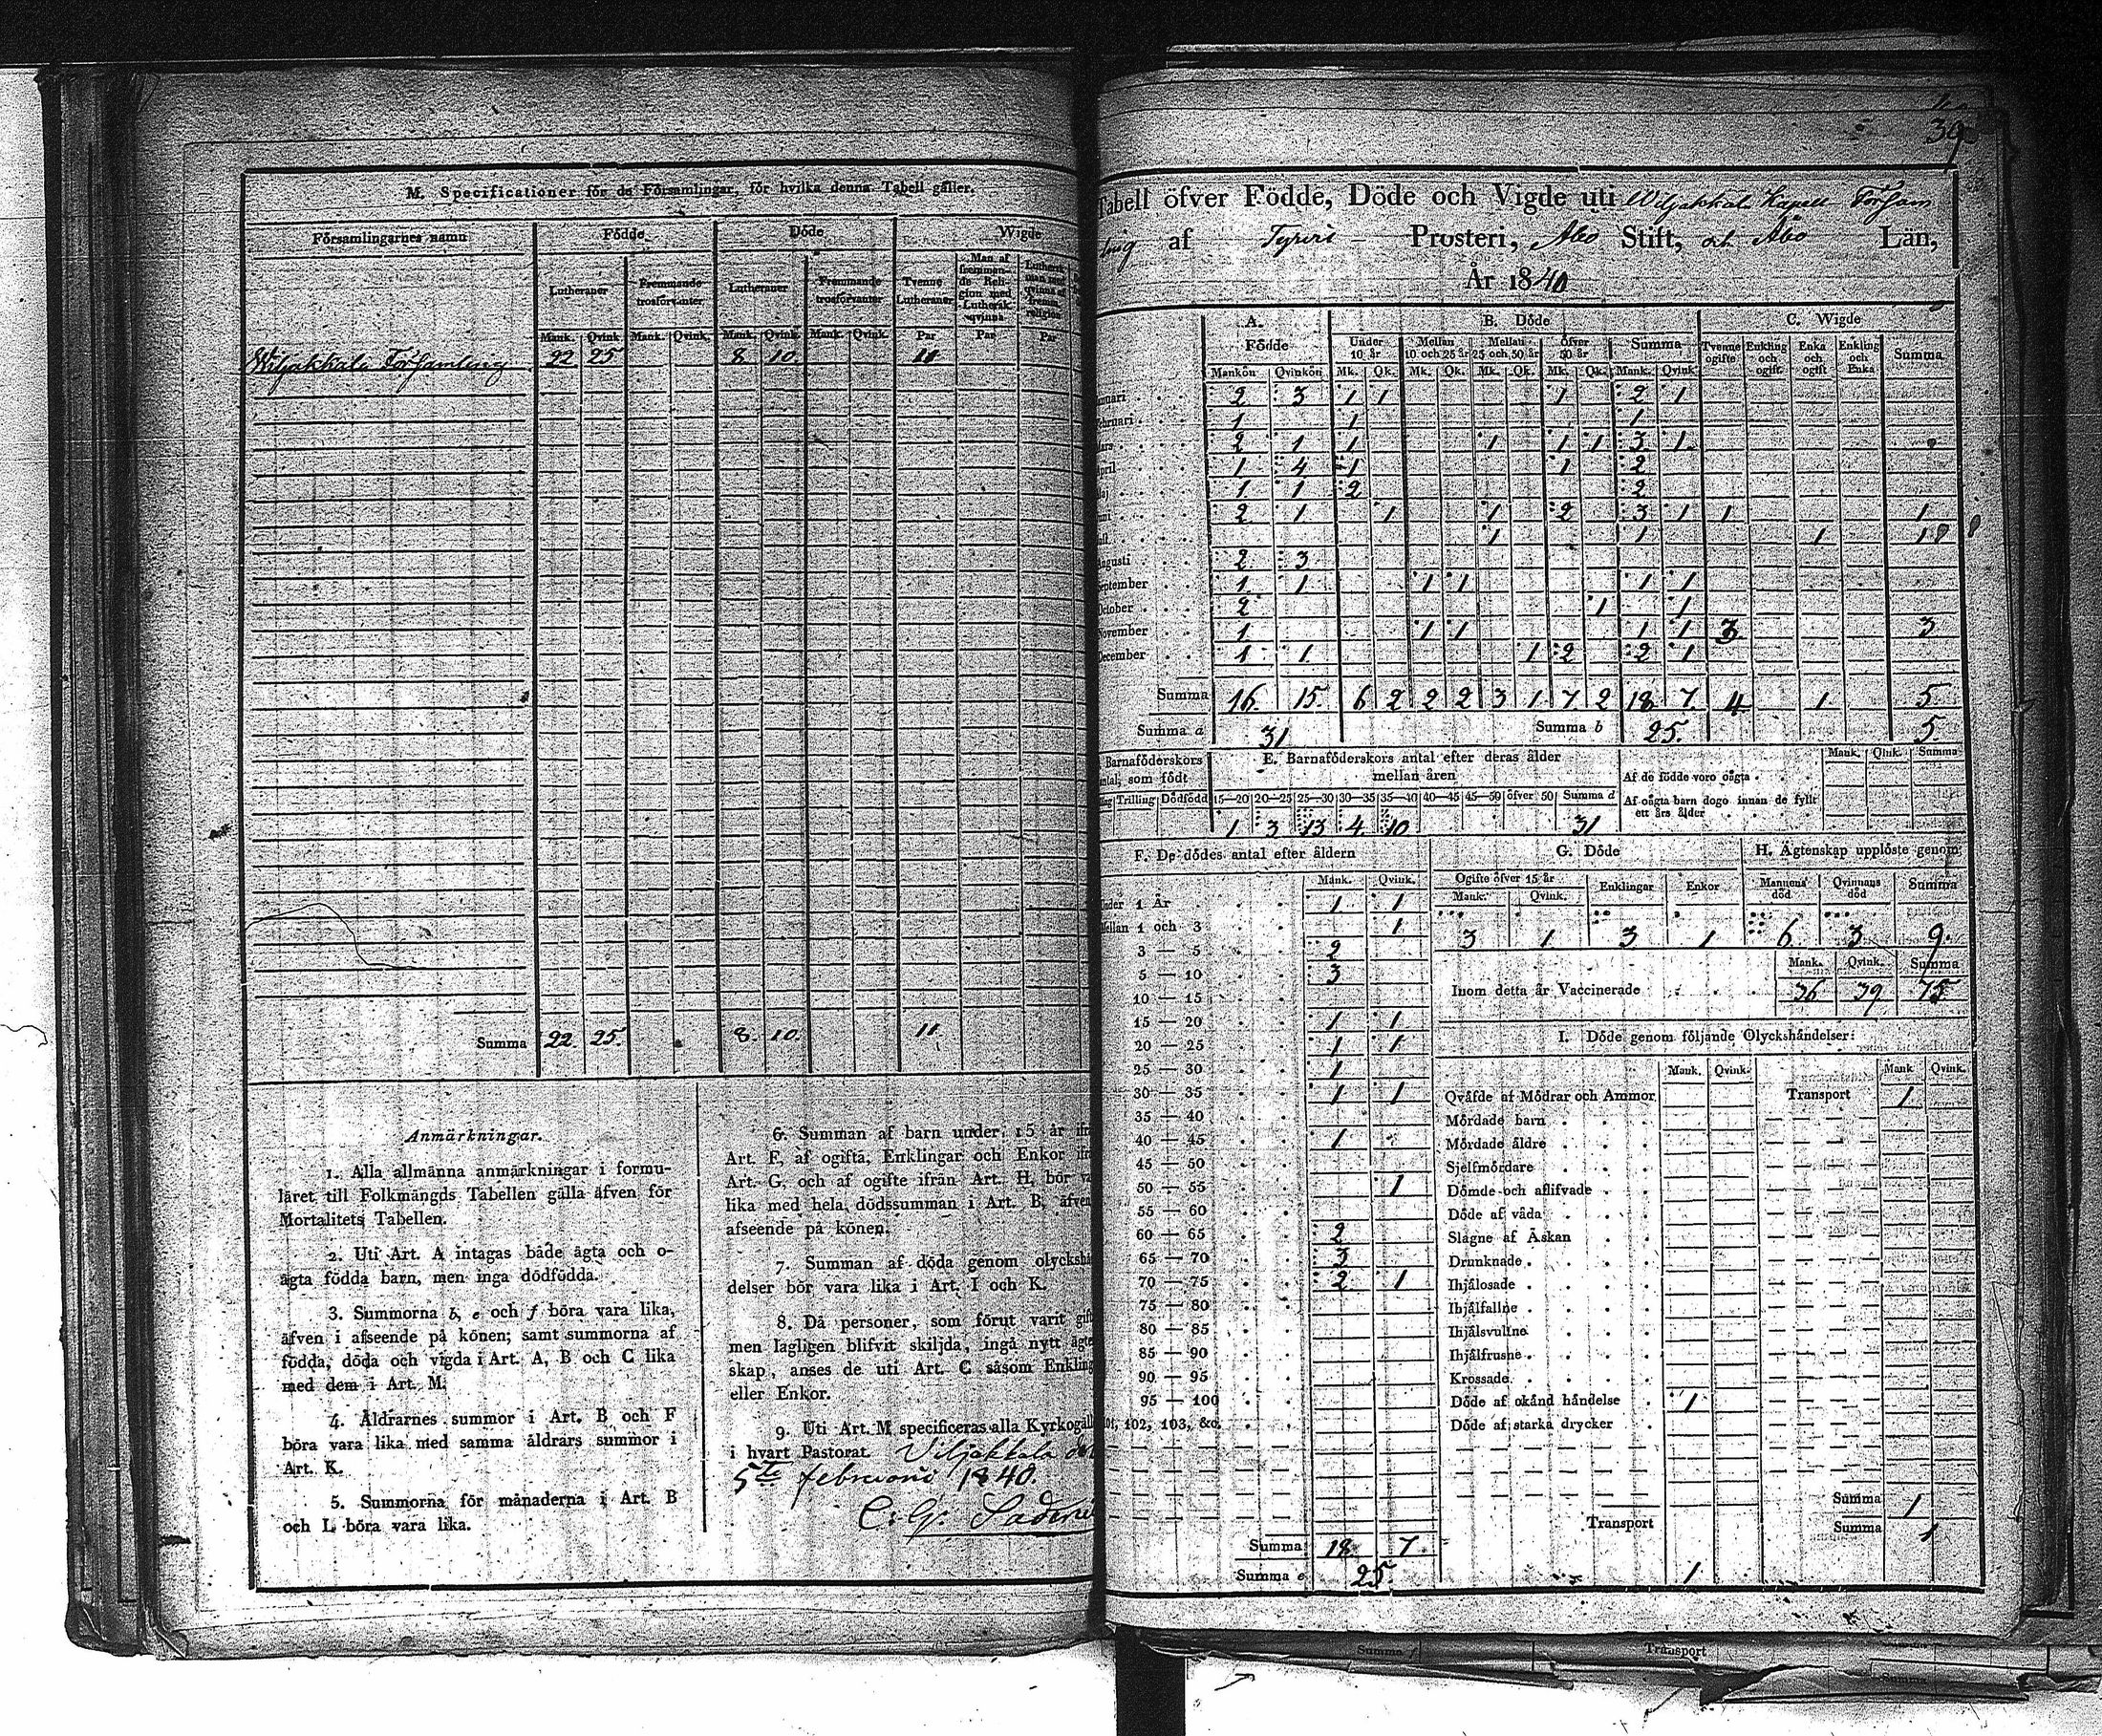 M. Specificationer för de Församlingar, för hvilka denna Tabell gäller.
Församlingarnes namn Födde Döde Wigde
Lutheraner Fremmande trosförvanter Lutheraner Fremmande trosförvanter Tvenne Lutheraner Man af fremmande Religion med Luthersk qvinna
Mank. Qvink Mank. Qvink. Mank. Qvink Mank. Qvink. Par Par Par
Wiljakkala Församling 22 25 8 10 11
Summa 22. 25. 8. 10. 11
Anmärkningar.
1. Alla allmänna anmärkningar i formu-
läret till Folkmängds Tabellen gälla äfven för
Mortalitets Tabellen.
2. Uti Art. A intagas både ägta och o-
ägta födda barn, men inga dödfödda.
3. Summorna b, e och f böra vara lika,
äfven i afseende på könen; samt summorna af
födda, döda och vigda i Art. A, B och C lika
med dem i Art. M.
4. Åldrarnes summor i Art. B och F
böra vara lika med samma åldrars summor i
Art. K.
5. Summorna för månaderna i Art. B
och L böra vara lika.
6. Summan af barn under 15 år
Art. F, af ogifta, Enklingar och Enkor
Art. G, och af ogifte ifrån Art. H, bör
lika med hela dödssumman i Art. B, äfven
afseende på könen.
7. Summan af döda genom
delser bör vara lika i Art. I och K.
8. Då personer, som förut varit
men lagligen blifvit skiljda, ingå nytt
skap, anses de uti Art. C såsom
eller Enkor.
9. Uti Art. M specificeras alla
i hvart Pastorat. Viljakkala
5te februarii 1840.
C. G.
39
Tabell öfver Födde, Döde och Vigde uti Wiljakkala Kapell Försam
ling af Tyrvis Prosteri, Åbo Stift, och Åbo Län,
År 1840
A. B. Döde C. Wigde
Födde Under 10 år Mellan 10 och 25 år Mellan 25 och 50 år Öfver 50 år Summa Tvenne ogifte Enkling och ogift Enka och ogift Enkling och Enka Summa
Mankön Qvinkön Mk. Qk. Mk. Qk. Mk. Qk. Mk. Qk. Mank. Qvink
Januari 2 3 1 1 1 2 1
Februari 1 1 1
Mars 2 1 1 1 1 1 3 1
April 1 4 1 1 2
Maj 1 1 2 2
Juni 2 1 1 1 2 3 1 1 1
Juli 1 1 1 1
Augusti 2 3
September 1 1 1 1 1 1
October 2 1 1
November 1 1 1 1 1 3 3
December 1 1 1 2 2 1
Summa 16. 15. 6 2 2 2 3 1 7 2 18 7. 4 1 5
Summa a 31 Summa b 25. 5.
Barnaföderskors antal, som födt E. Barnaföderskors antal efter deras ålder mellan åren Mank. Qink. Summa
Af de födde voro oägta
Af oägta barn dogo innan de fyllt ett års ålder
Trilling Dödfödd 15—20 20—25 25—30 30—35 35—40 40—45 45—50 öfver 50 Summa d
1 3 13 4 10 31
F. De dödes antal efter åldern G. Döde H. Ägtenskap upplöste genom
Mank. Qvink. Ogifte öfver 15 år Enklingar Enkor Mannens död Qvinnans död Summa
Mank. Qvink.
3 1 3 1 6 3 9.
Under 1 År 1 1
Mellan 1 och 3 1
3 — 5 2
5 — 10 3
10 — 15
15 — 20 1 1
20 — 25 1 1
25 — 30 1
30 — 35 1 1
35 — 40
40 — 45 1
45 — 50
50 — 55 1
55 — 60
60 — 65 2
65 — 70 3
70 — 75 2 1
75 — 80
80 — 85
85 — 90
90 — 95
95 — 100
101, 102, 103, &c.
Summa 18 7
Summa e 25
Mank. Qvink. Summa
Inom detta år Vaccinerade 36 39 75
I. Döde genom följande Olyckshändelser:
Mank. Qvink. Mank Qvink.
Qväfde af Mödrar och Ammor Transport 1
Mördade barn
Mördade äldre
Sjelfmördare
Dömde och aflifvade
Döde af våda
Slagne af Åskan
Drunknade
Ihjälosade
Ihjälfallne
Ihjälsvultne
Ihjälfrusne
Krossade
Döde af okänd händelse 1
Döde af starka drycker
Summa 1
Transport Summa 1
1
Summa f Transport
Summa